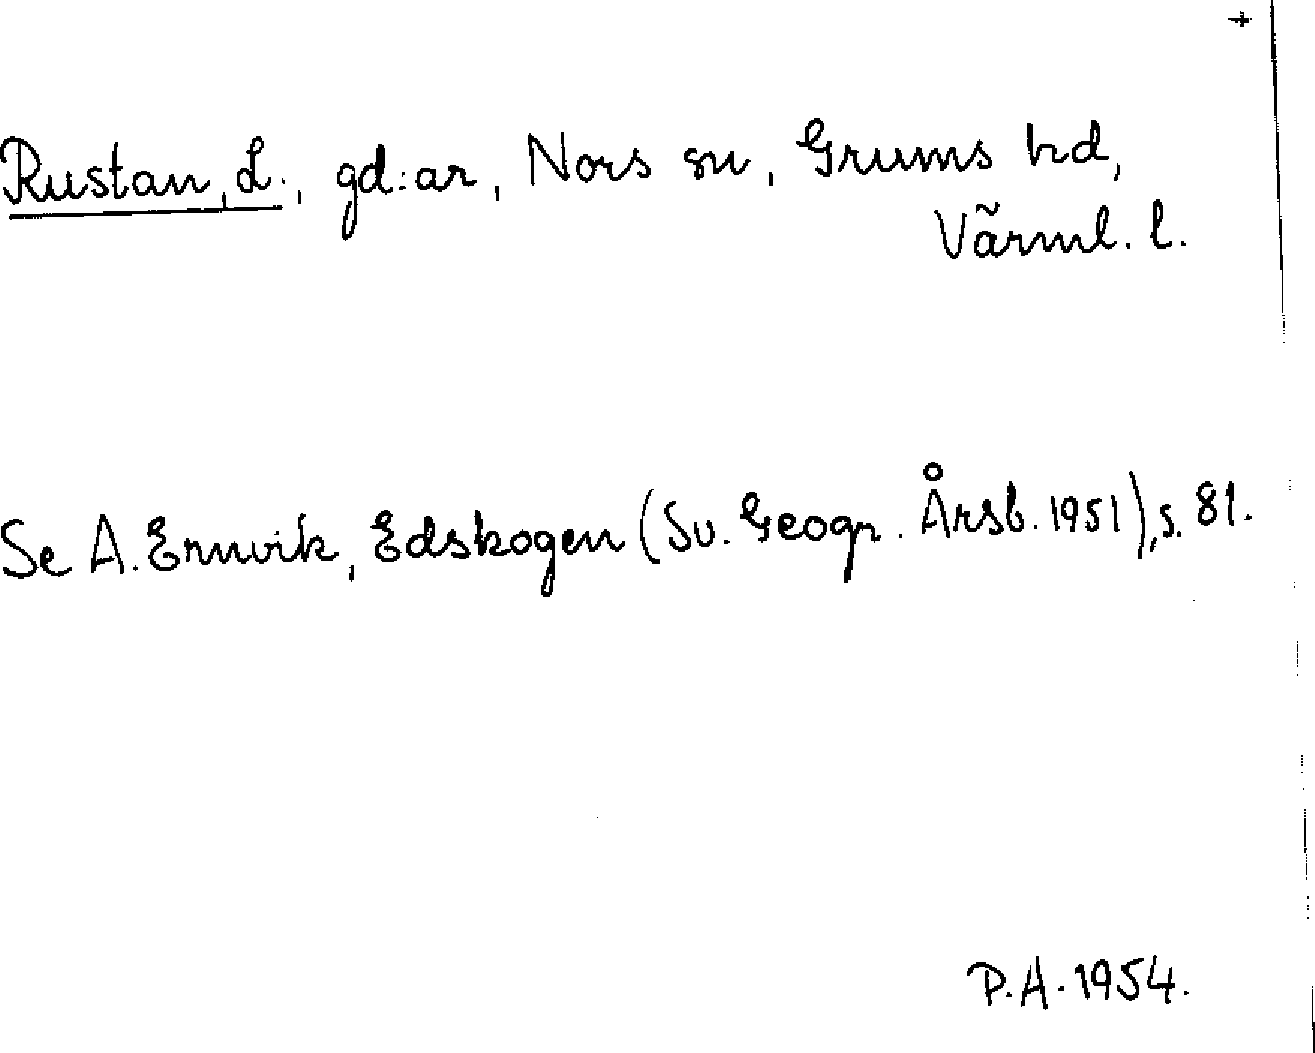 +
Rustan, L., gd:ar, Nors sn, Grums hd,
Värml. l.
Se A. Ernvik, Edskogen (Sv. Geogr. Årsb. 1951), s. 81.
P.A. 1954.